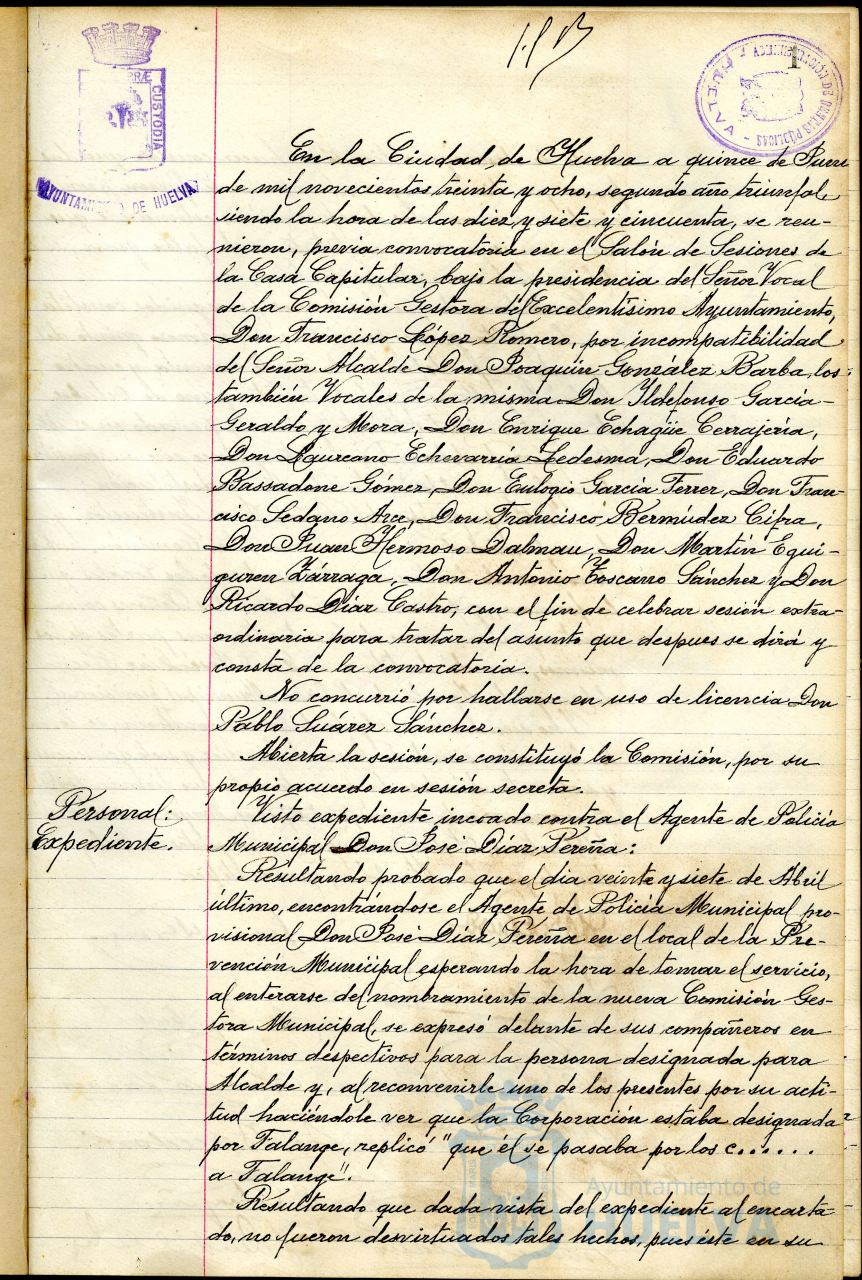 PRÆ
CUSTODIA
AYUNTAMIENTO DE HUELVA
1
HUELVA
En la Ciudad de Huelva a quince de Juni
de mil novecientos treinta y ocho, segundo año triunfal,
siendo la hora de las diez y siete y cincuenta, se reu-
nieron, previa convocatoria en el Salón de Sesiones de
la Casa Capitular, bajo la presidencia del Señor Vocal
de la Comisión Gestora del Excelentísimo Ayuntamiento,
Don Francisco López Romero, por incompatibilidad
del Señor Alcalde Don Joaquín González Barba, los
también Vocales de la misma Don Ildefonso García-
Geraldo y Mora, Don Enrique Echagüe Cerrajería,
Don Laureano Echevarría Ledesma, Don Eduardo
Bassadone Gómez, Don Eulogio García Ferrer, Don Fran-
cisco Sedano Arce, Don Francisco Bermúdez Cifra,
Don Juan Hermoso Dalmau, Don Martín Egui-
guren Zárraga, Don Antonio Toscano Sánchez y Don
Ricardo Díaz Castro, con el fin de celebrar sesión extra-
ordinaria para tratar del asunto que despues se dirá y
consta de la convocatoria.
No concurrió por hallarse en uso de licencia Don
Pablo Suárez Sánchez.
Abierta la sesión, se constituyó la Comisión, por su
propio acuerdo en sesión secreta.
Personal:
Expediente.
Visto expediente incoado contra el Agente de Policía
Municipal Don José Díaz Pereña:
Resultando probado que el dia veinte y siete de Abril
último, encontrándose el Agente de Policía Municipal pro-
visional Don José Díaz Pereña en el local de la Pre-
vención Municipal esperando la hora de tomar el servicio,
al enterarse del nombramiento de la nueva Comisión Ges-
tora Municipal, se expresó delante de sus compañeros en
términos despectivos para la persona designada para
Alcalde y, al reconvenirle uno de los presentes por su acti-
tud haciéndole ver que la Corporación estaba designada
por Falange, replicó "que él se pasaba por los c......
a Falange".
Resultando que dada vista del expediente al encarta-
do, no fueron desvirtuados tales hechos, pues éste en su
Ayuntamiento de
HUELVA